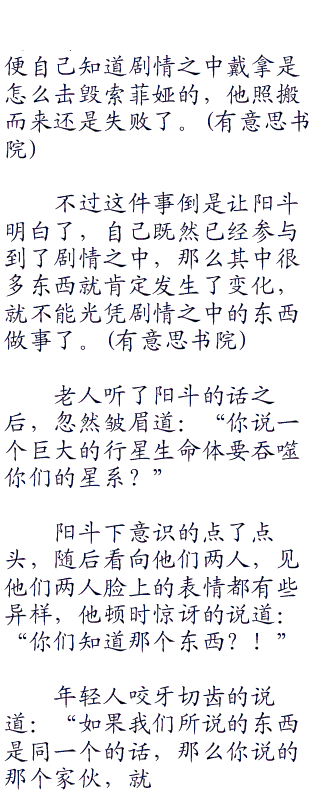 便自己知道剧情之中戴拿是
怎么击毁索菲娅的，他照搬
而来还是失败了。(有意思书
院)
不过这件事倒是让阳斗
明白了，自己既然已经参与
到了剧情之中，那么其中很
多东西就肯定发生了变化，
就不能光凭剧情之中的东西
做事了。(有意思书院)
老人听了阳斗的话之
后，忽然皱眉道：“你说一
个巨大的行星生命体要吞噬
你们的星系？”
阳斗下意识的点了点
头，随后看向他们两人，见
他们两人脸上的表情都有些
异样，他顿时惊讶的说道：
“你们知道那个东西？！”
年轻人咬牙切齿的说
道：“如果我们所说的东西
是同一个的话，那么你说的
那个家伙，就